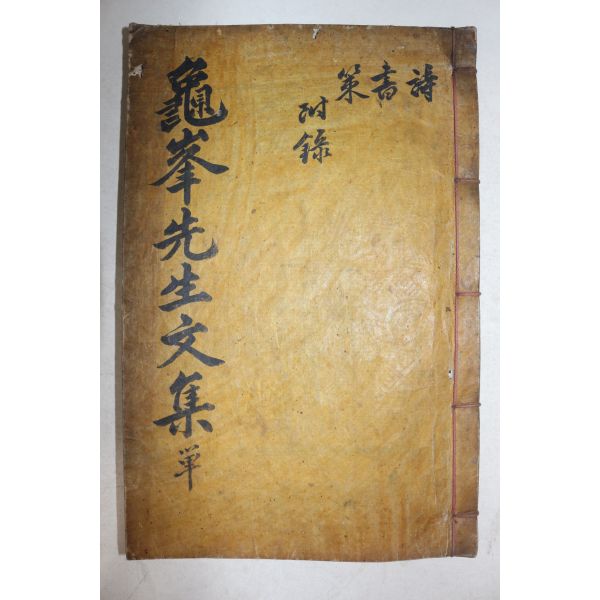 詩書策
附錄
龜峯先生文集 単